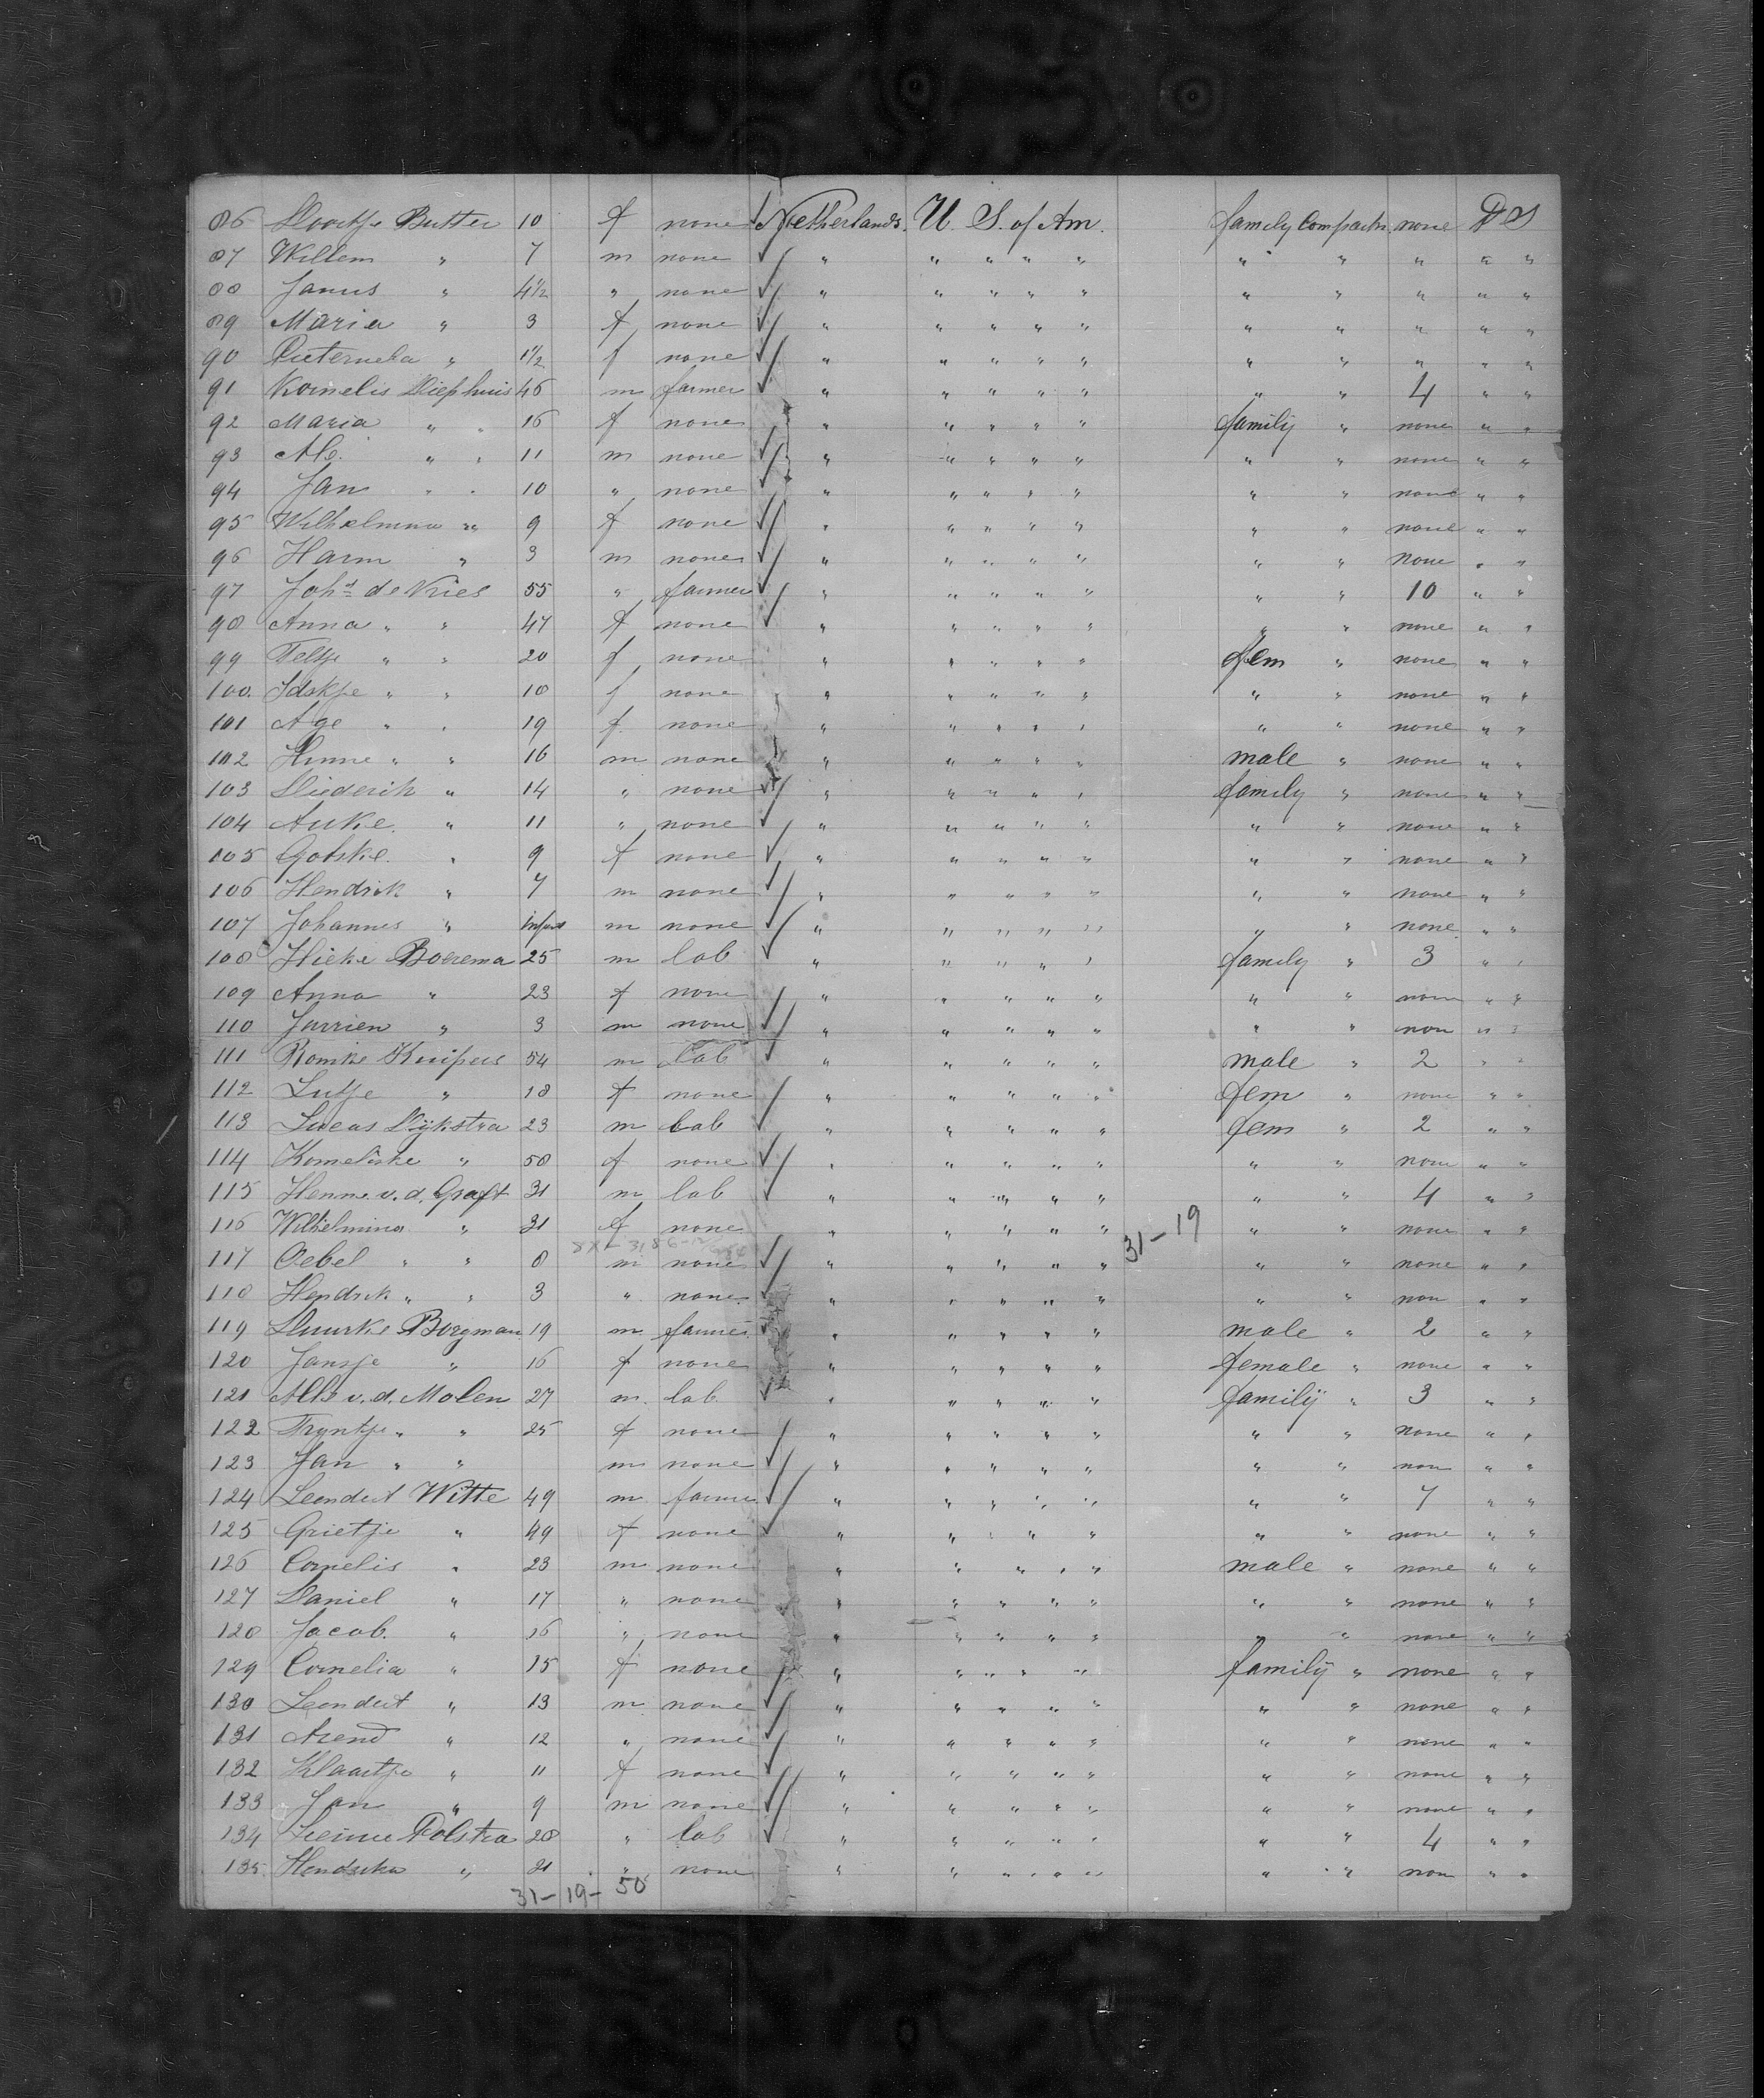 86 Doortje Butter 10 f none Netherlands. U. S. of Am. family Compartm. none DS
87 Willem " 7 m none " " " " " " " " " "
88 Janus " 4½ " none " " " " " " " " " "
89 Maria " 3 f none " " " " " " " " " "
90 Pieternella " 1½ f none " " " " " " " " " "
91 Kornelis Diephuis 46 m farmer " " " " " " " 4 " "
92 Maria " " 16 f none " " " " " family " none " "
93 Ale. " " 11 m none " " " " " " " none " "
94 Jan " " 10 " none " " " " " " " none " "
95 Wilhelmina " 9 f none " " " " " " " none " "
96 Harm " 3 m none " " " " " " " none " "
97 Johs de Vries 55 " farmer " " " " " " " 10 " "
98 Anna " " 47 f none " " " " " " " none " "
99 Teltje " " 20 f none " " " " " fem " none " "
100. Idskje " " 18 f none " " " " " " " none " "
101 Age " " 19 f none " " " " " " " none " "
102 Hinne " " 16 m none " " " " " male " none " "
103 Diederik " 14 " none " " " " " family " none " "
104 Auke. " 11 " none " " " " " " " none " "
105 Gotske. " 9 f none " " " " " " " none " "
106 Hendrik " 7 m none " " " " " " " none " "
107 Johannes " infant m none " " " " " " " none " "
108 Hieke Boerema 25 m lab " " " " " family " 3 " "
109 Anna " 23 f none " " " " " " " non " "
110 Jurrien " 3 m none " " " " " " " non " "
111 Romke Kuipers 54 m lab " " " " " male " 2 " "
112 Lutje " 18 f none " " " " " fem " none " "
113 Lucas Dijkstra 23 m lab " " " " " fem " 2 " "
114 Korneliske " 58 f none " " " " " " " non " "
115 Henne v. d. Graft 31 m lab " " " " " " " 4 " "
116 Wilhelmina " 31 f none " " " " " 31-19 " " none " "
117 Oebel " " 8 m none " " " " " " " none " "
118 Hendrik " " 3 " none " " " " " " " non " "
119 Duurke Borgman 19 m farmer " " " " " male " 2 " "
120 Jansje " 16 f none " " " " " female " none " "
121 Alle v. d. Molen 27 m. lab. " " " " " familij " 3 " "
122 Tryntje " " 25 f none " " " " " " " none " "
123 Jan " " m none " " " " " " " non " "
124 Leendert Witte 49 m farmer " " " " " " " 7 " "
125 Grietje " 49 f none " " " " " " " none " "
126 Cornelis " 23 m none " " " " " male " none " "
127 Daniel " 17 " none " " " " " " " none " "
128 Jacob. " 16 " none " " " " " " " none " "
129 Cornelia " 15 f none " " " " " familij " none " "
130 Leendert " 13 m none " " " " " " " none " "
131 Arend " 12 " none " " " " " " " none " "
132 Klaartje " 11 f none " " " " " " " none " "
133 Jan " 9 m none " " " " " " " none " "
134 Polstra 28 " lab " " " " " " " 4 " "
135. Hendrika " 21 " none " " " " " " " non " "
31-19-50